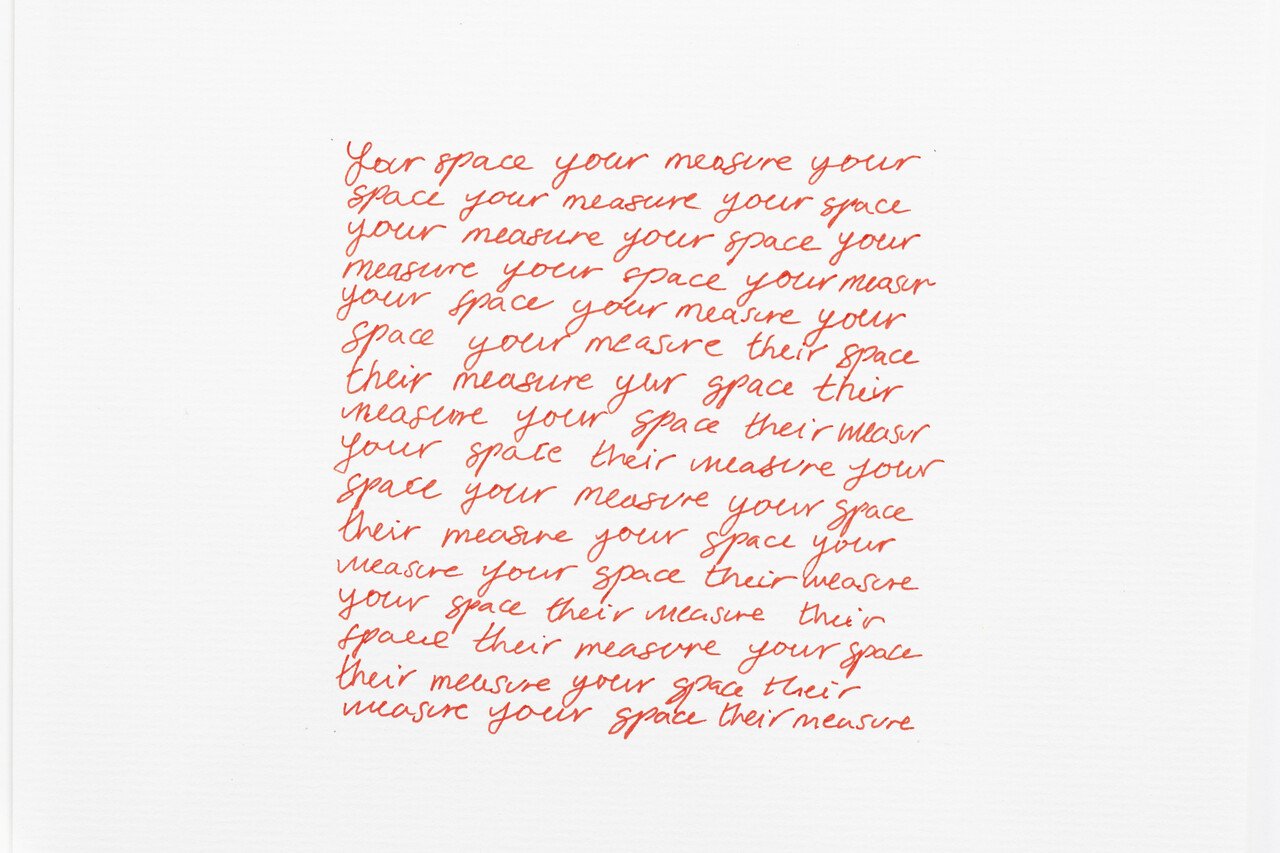 Your space your measure your
space your measure your space
your measure your space your
measure your space your measur
your space your measure your
space your measure their space
their measure your space their
measure your space their measur
your space their measure your
space your measure your space
their measure your space your
measure your space their measure
your space their measure their
space their measure your space
their measure your space their
measure your space their measure